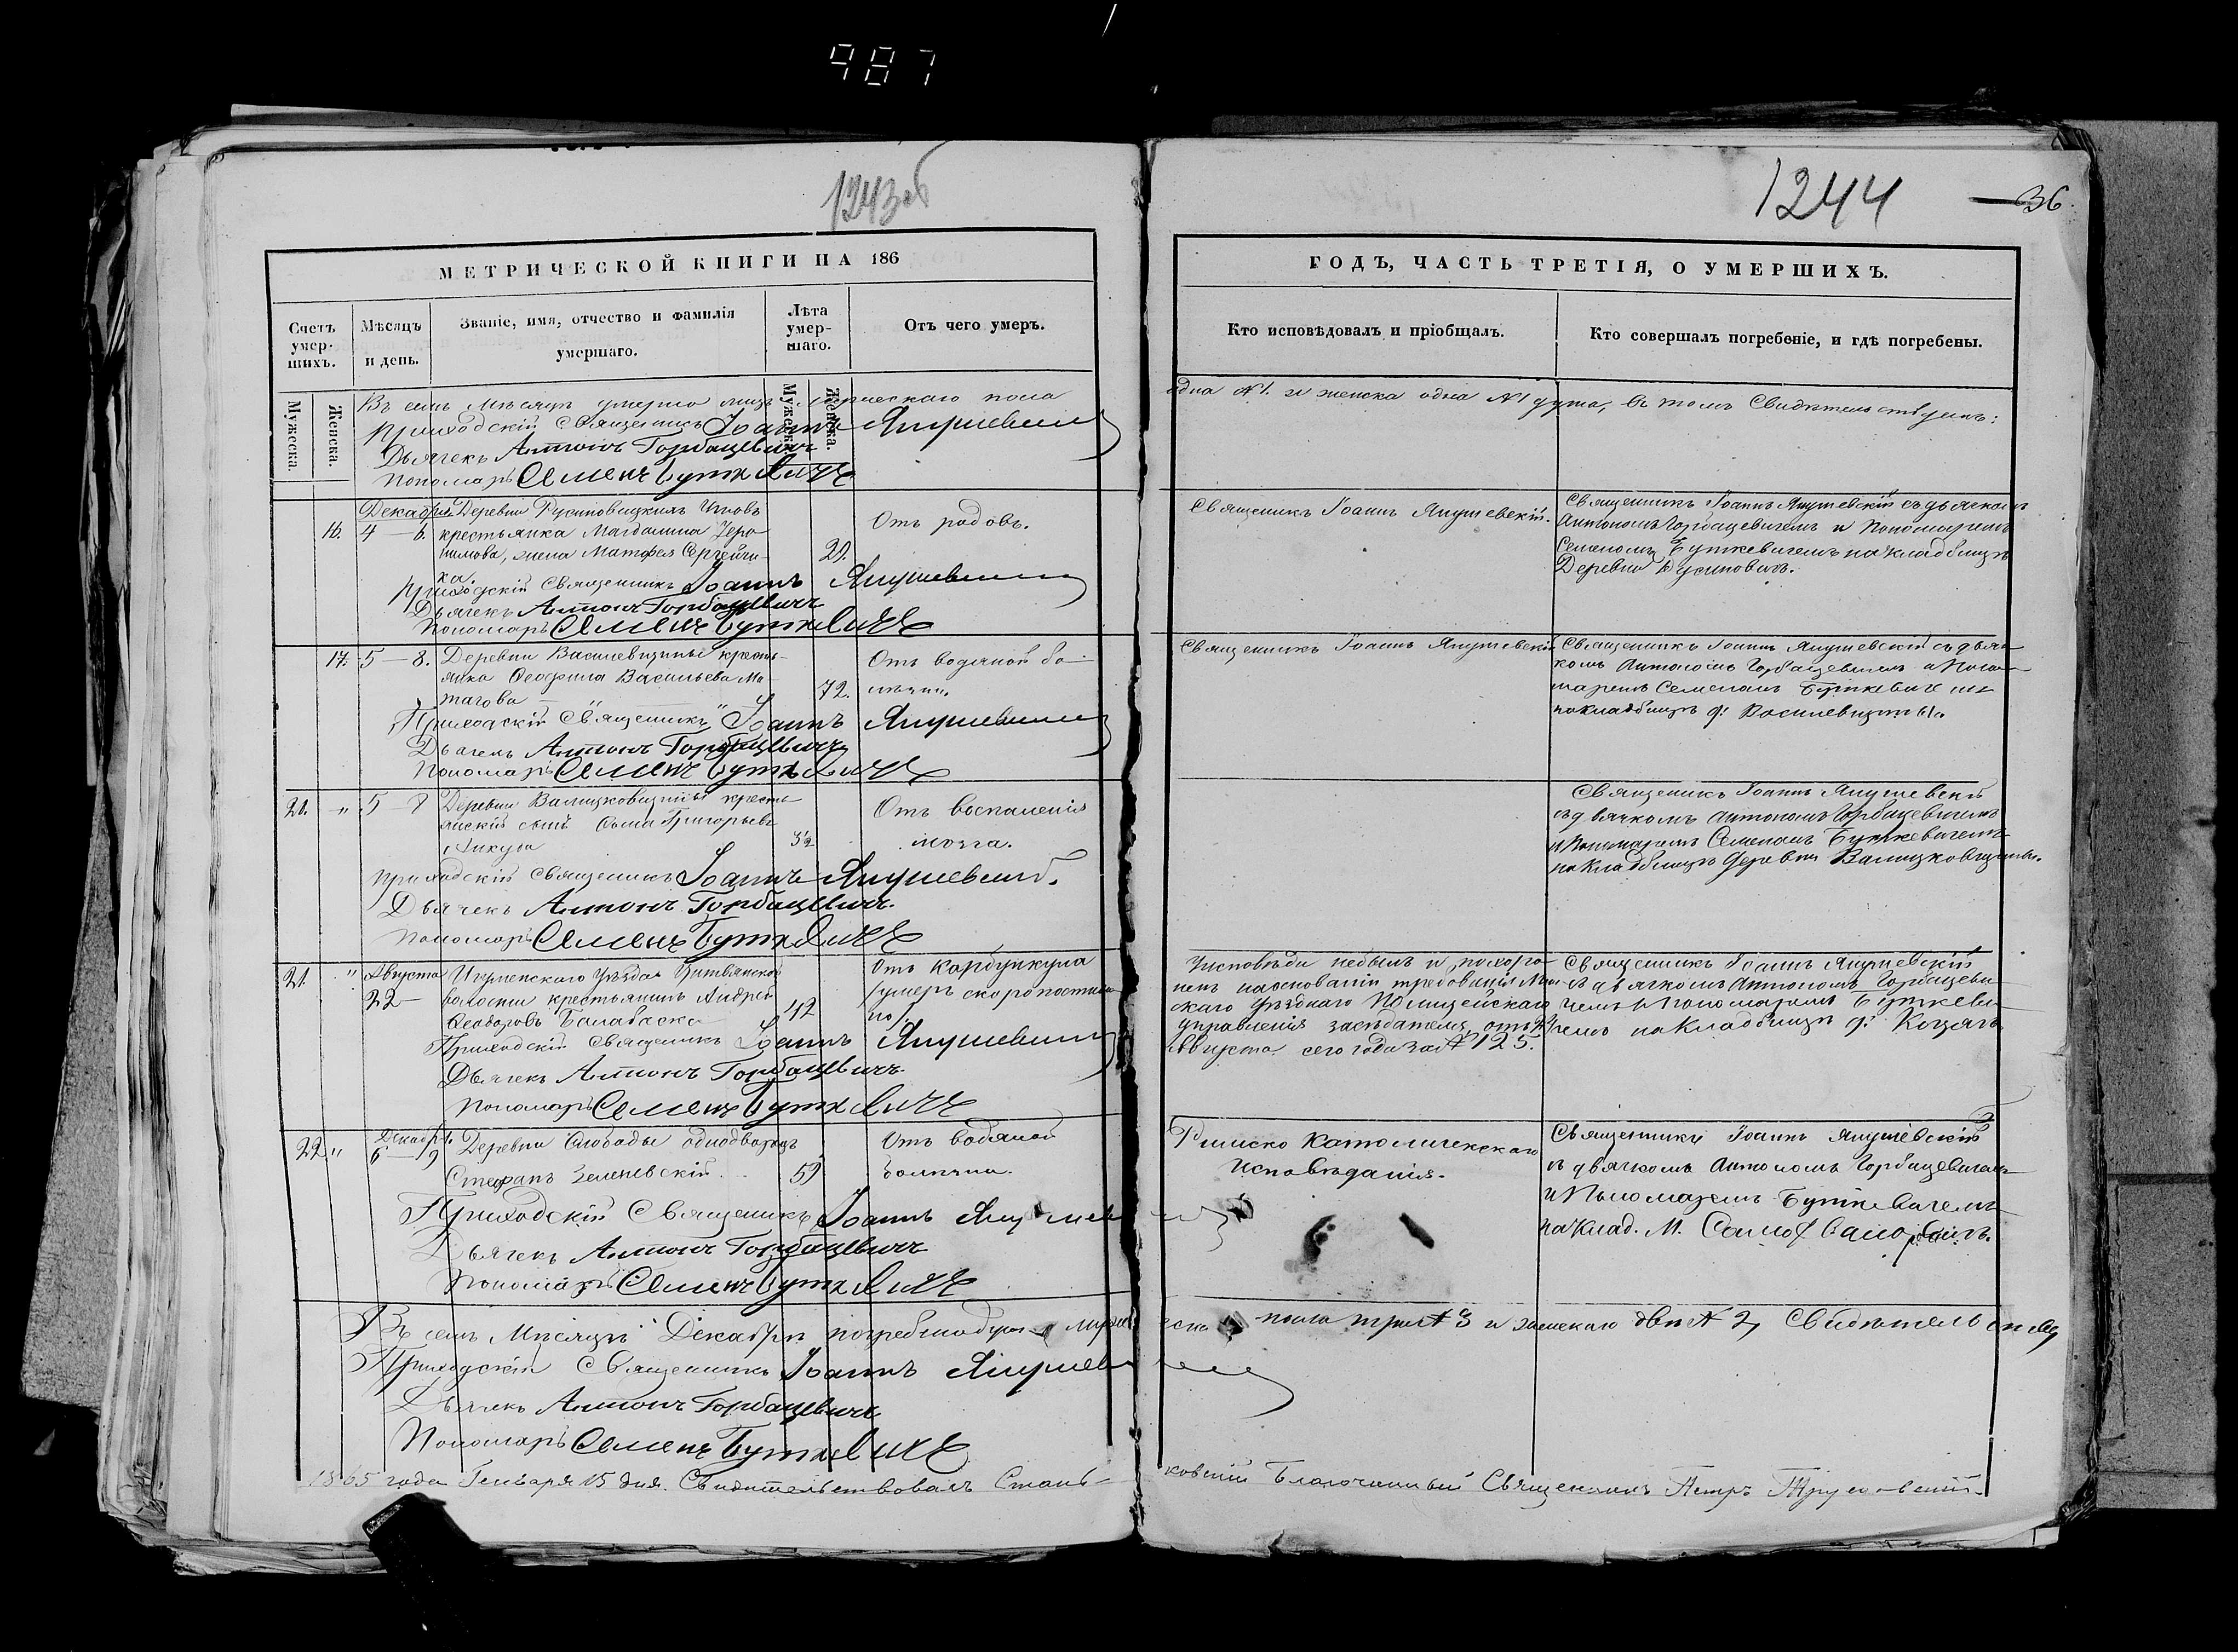 987
1243об
МЕТРИЧЕСКОЙ КНИГИ НА 186
Счетъ умер-шихъ.
Мужеска.
Женска.
Мѣсяцъ и день.
Званіе, имя, отчество и фамилія умершаго.
Лѣта умер-шаго.
Мужеска.
Женска.
Отъ чего умеръ.
Въ семъ мѣсяцѣ умерло лицъ мужескаго пола
Приходскій Священникъ Іоаннъ Янушевскій
Дьячекъ Антонъ Горбацевичъ
Пономарь Семенъ Буткевичъ
16.
Декабря
4 — 6.
Деревни
крестьянка Магдалина Iеро-
нимова, жена Матфея Сергейчи-
ка.
Отъ родовъ.
Приходскій Священникъ Іоаннъ Янушевскій
Дьячекъ Антонъ Горбацевичъ
Пономарь Семенъ Буткевичъ
17. 5 — 8.
Деревни Василевщины кресть-
янка Ѳеофила Васильева Ма-
72.
Отъ водяной бо-
лѣзни.
Приходскій Священникъ Іоаннъ Янушевскій
Дьячекъ Антонъ Горбацевичъ
Пономарь Семенъ Буткевичъ
20. " 5 — 8
Деревни Валицковщины кресть-
янскій сынъ Ѳома Григорьевъ
Отъ воспаленія
мозга.
Приходскій Священникъ Іоаннъ Янушевскій.
Дьячекъ Антонъ Горбацевичъ.
Пономарь Семенъ Буткевичъ
21. " Августа
22 —
Игуменскаго Уѣзда
волости крестьянинъ Андрей
Ѳеодоровъ Балабаска
42
Отъ карбункула
умеръ скоропостиж-
но
Приходскій Священникъ Іоаннъ Янушевскій
Дьячекъ Антонъ Горбацевичъ.
Пономарь Семенъ Буткевичъ
22 " Декабря
6 — 9
Деревни Слободы однодворецъ
Стефанъ Зеленевскій.
Отъ водяной
болѣзни.
Приходскій Священникъ Іоаннъ Янушевскій
Дьячекъ Антонъ Горбацевичъ
Пономарь Семенъ Буткевичъ
Въ семъ Мѣсяцѣ Декабрѣ погребено
Приходскій Священникъ Іоаннъ Янушевскій
Дьячекъ Антонъ Горбацевичъ
Пономарь Семенъ Буткевичъ
1865 года Генваря 15 дня. Свидѣтельствовалъ Стань-
1244 — 36.
ГОДЪ, ЧАСТЬ ТРЕТІЯ, О УМЕРШИХЪ.
Кто исповѣдовалъ и пріобщалъ.
Кто совершалъ погребеніе, и гдѣ погребены.
одна №1. и женска одна №1 душа, въ томъ Свидѣтельствуемъ:
Священникъ Іоаннъ Янушевскій.
Священникъ Іоаннъ Янушевскій съ дьячкомъ
Антономъ Горбацевичемъ и Пономаремъ
Семеномъ Буткевичемъ на кладбищѣ
Деревни
Священникъ Іоаннъ Янушевскій
Священникъ Іоаннъ Янушевскій съ дьяч-
комъ Антономъ Горбацевичемъ и Поно-
маремъ Семеномъ Буткевичемъ
на кладбищѣ д: Василевщины.
Священникъ Іоаннъ Янушевскій
съ дьячкомъ Антономъ Горбацевичемъ
и Пономаремъ Семеномъ Буткевичемъ
на кладбищѣ деревни Валицковщины.
Исповѣди небылъ и похоро-
ненъ на основаніи требованія Мин-
скаго Уѣзднаго Полицейскаго
Управленія засѣдателя, отъ
Августа сего года за № 125.
Священникъ Іоаннъ Янушевскій
съ дьячкомъ Антономъ Горбацеви-
чемъ и Пономаремъ Буткеви-
чемъ на кладбищѣ д:
Римско Католическаго
Исповѣданія.
Священникъ Іоаннъ Янушевскій
съ дьячкомъ Антономъ Горбацевичемъ
и Пономаремъ Буткевичемъ
на клад. м.
пола три №3 и женскаго двѣ №2,
ковскій Благочинный Священникъ Петръ